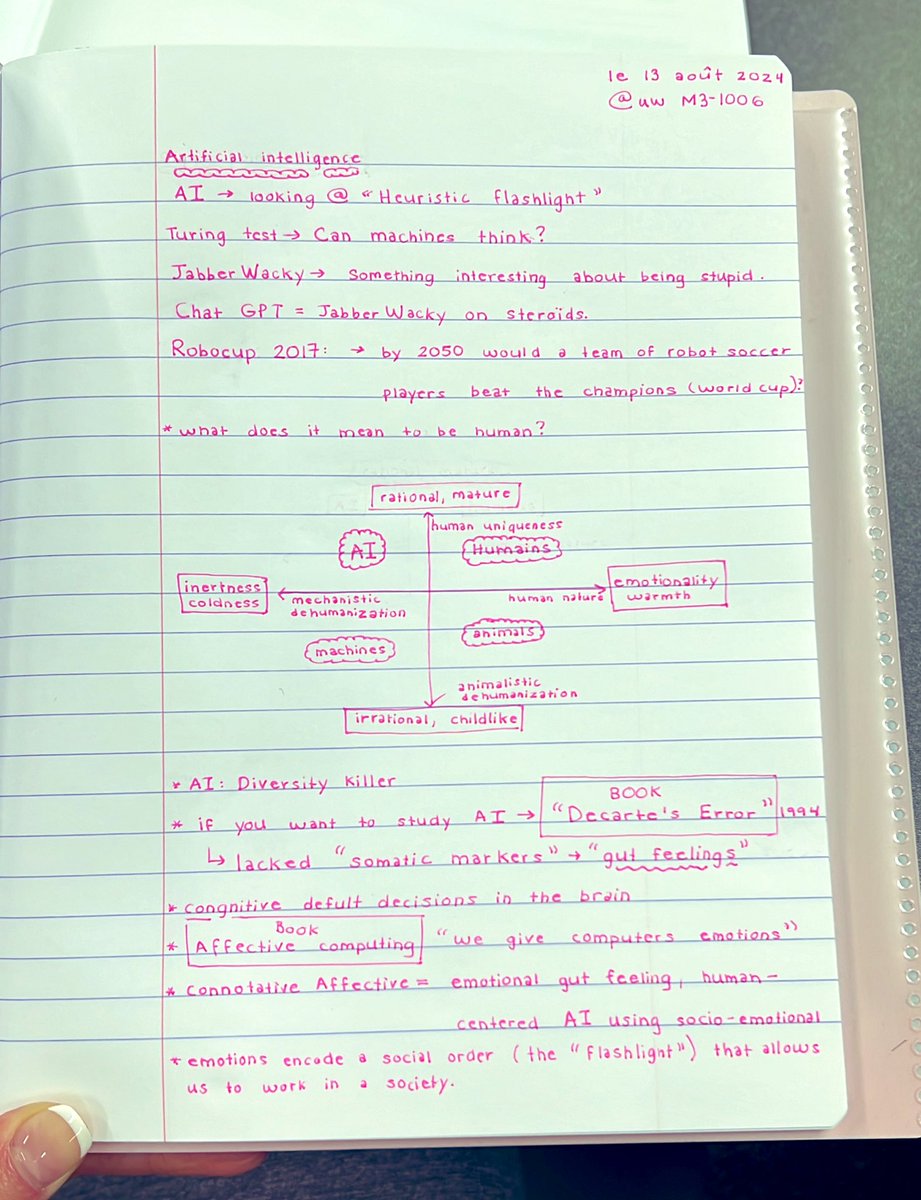 le 13 août 2024
@uw M3-1006
Artificial intelligence
AI → looking @ "Heuristic flashlight"
Turing test → Can machines think?
Jabber Wacky → something interesting about being stupid.
Chat GPT = Jabber Wacky on steroids.
Robocup 2017: → by 2050 would a team of robot soccer
players beat the champions (world cup)?
* what does it mean to be human?
rational, mature
human uniqueness
AI
Humains
inertness
coldness
mechanistic
dehumanization
human nature
emotionality
warmth
machines
animals
animalistic
dehumanization
irrational, childlike
* AI: Diversity Killer
BOOK
* if you want to study AI → "Decarte's Error" 1994
↳ lacked "somatic markers" → "gut feelings"
* congnitive defult decisions in the brain
Book
* Affective computing "we give computers emotions"
* connotative Affective = emotional gut feeling, human-
centered AI using socio-emotional
* emotions encode a social order (the "flashlight") that allows
us to work in a society.